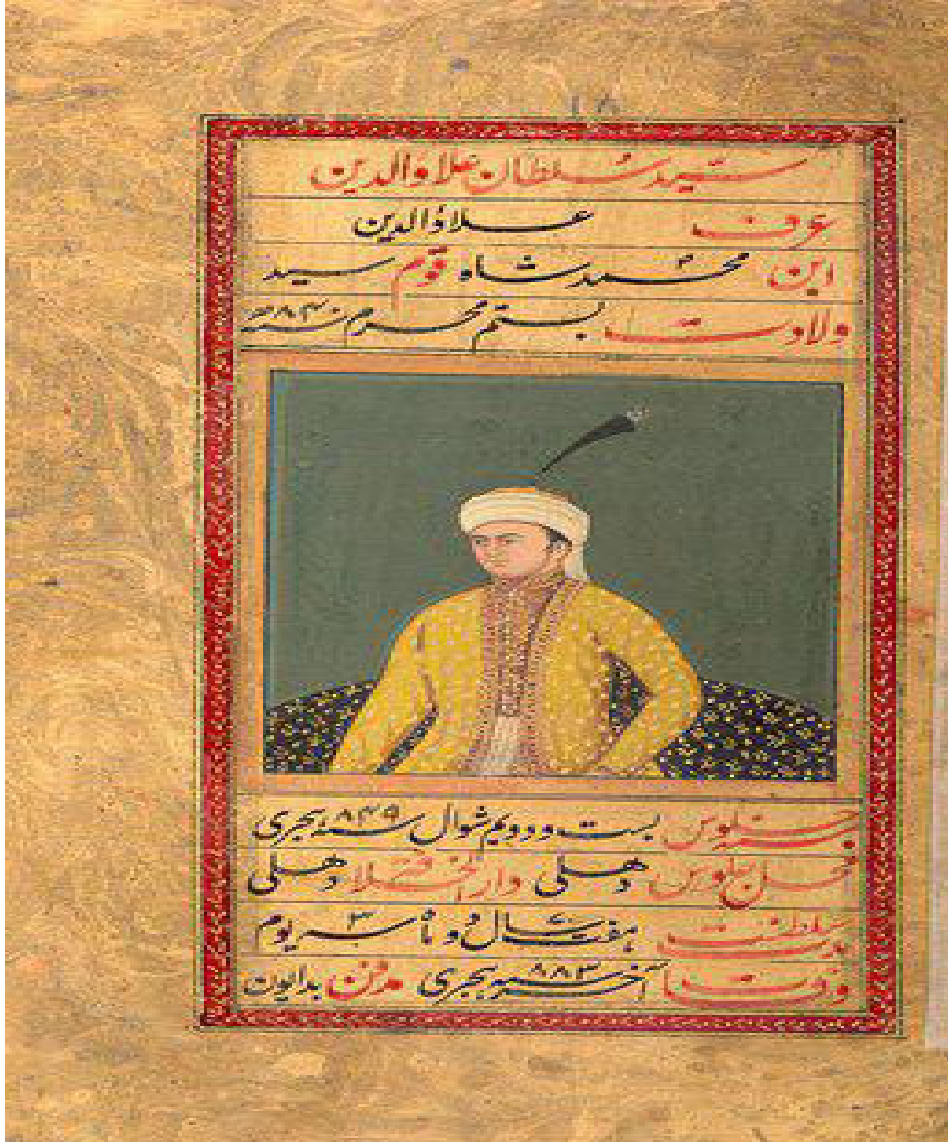 ۱۵
سید سلطان علاوالدین
عرف علاؤالدین
ابن محمد شاه قوم سید
ولادت بستم محرم سنه ۸۴۰
جلوس بست و دویم شوال سنه ۸۴۹ هجری
محل جلوس دهلی دار الخلافة دهلی
مدت سلطنت هفت سال و ۳ یوم
وفات آخر سنه ۸۸۳ هجری مدفن بدایون